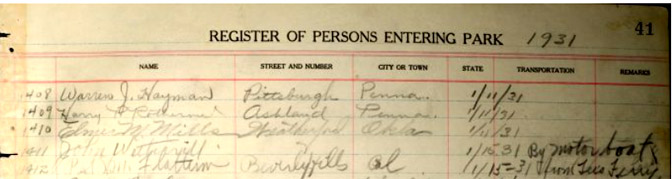 REGISTER OF PERSONS ENTERING PARK 1931 41
NAME STREET AND NUMBER CITY OR TOWN STATE TRANSPORTATION REMARKS
1408 Warren J. Hayman Pittsburgh Penna. 1/11/31
1409 Harry Ashland Penna. 1/11/31
1410 Elmer M Mills Weatherford Okla 1/11/31
1411 John 1/15 31 By motor boat
1412 Beverly Hills Cal 1/15-31 from Lees Ferry